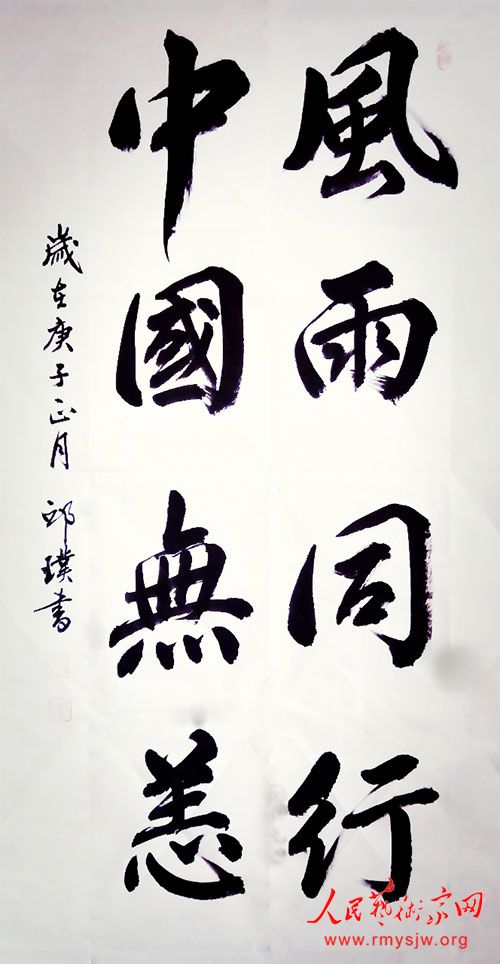 風雨同行
中國無恙
歲在庚子正月 邱璞書
人民藝術家网
www.rmysjw.org